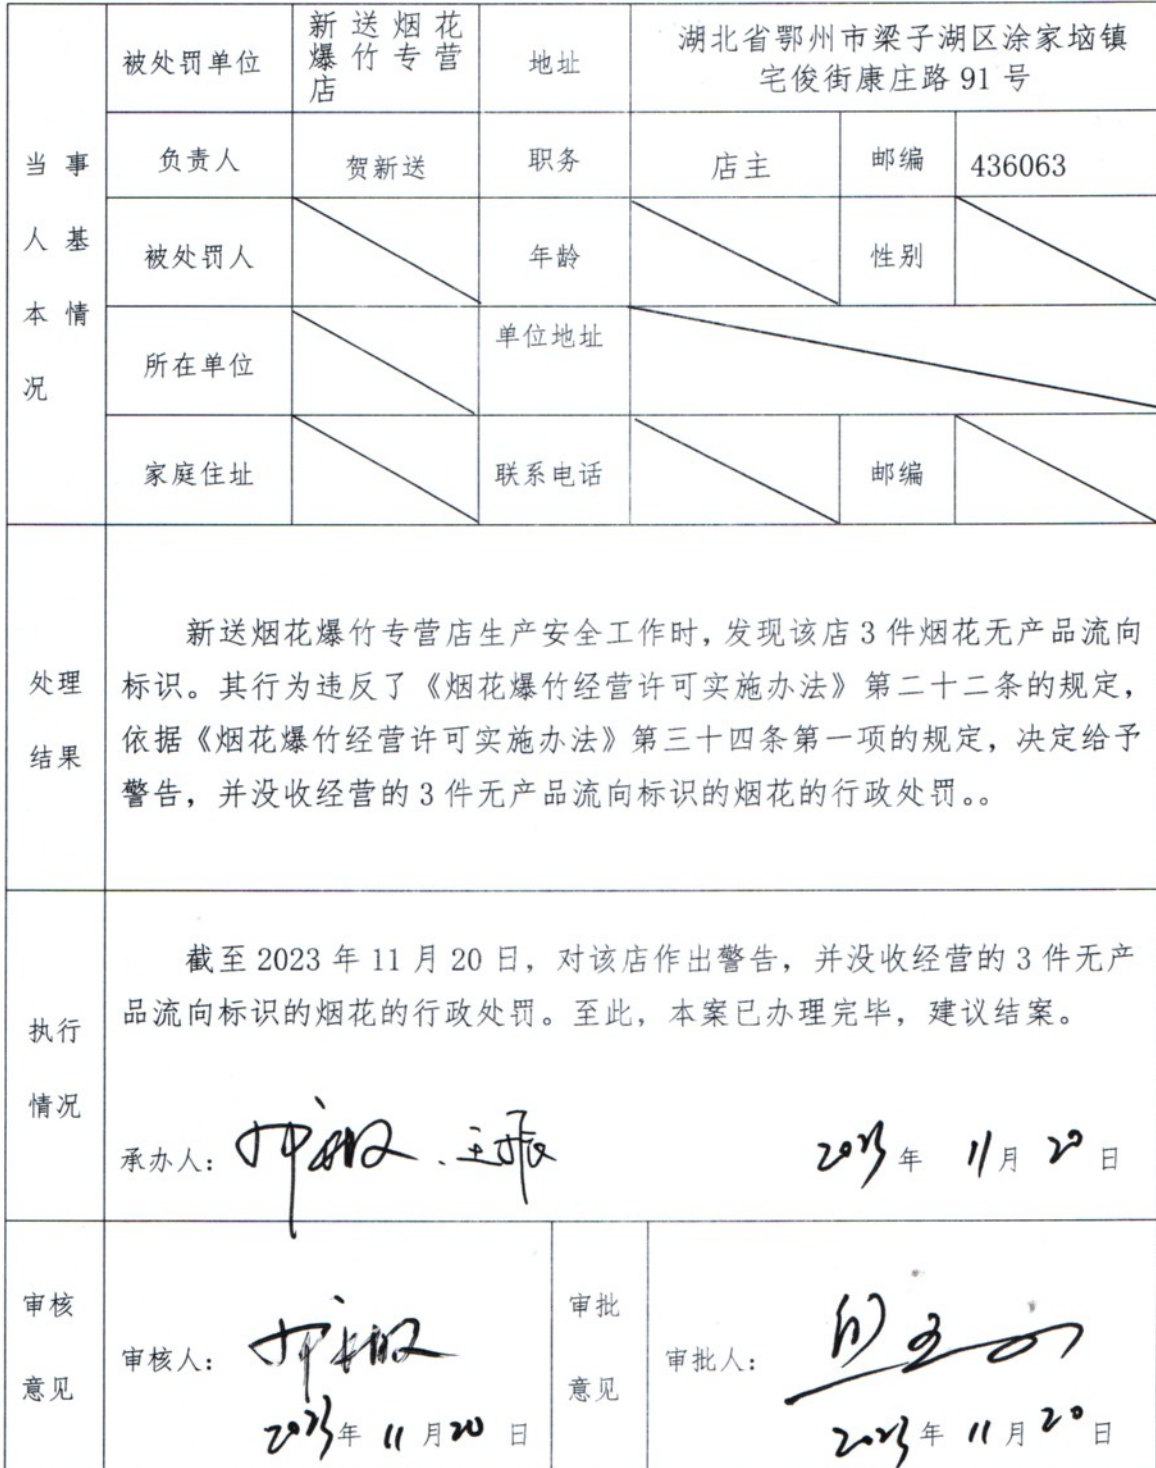 当事
人基
本情
况
被处罚单位
新送烟花
爆竹专营
店
地址
湖北省鄂州市梁子湖区涂家垴镇
宅俊街康庄路 91 号
负责人
贺新送
职务
店主
邮编
436063
被处罚人
年龄
性别
所在单位
单位地址
家庭住址
联系电话
邮编
处理
结果
新送烟花爆竹专营店生产安全工作时，发现该店 3 件烟花无产品流向
标识。其行为违反了《烟花爆竹经营许可实施办法》第二十二条的规定，
依据《烟花爆竹经营许可实施办法》第三十四条第一项的规定，决定给予
警告，并没收经营的 3 件无产品流向标识的烟花的行政处罚。。
执行
情况
截至 2023 年 11 月 20 日，对该店作出警告，并没收经营的 3 件无产
品流向标识的烟花的行政处罚。至此，本案已办理完毕，建议结案。
承办人： 、王振 2023年 11月 20日
审核
意见
审核人：
2023年 11月20日
审批
意见
审批人：
2023年 11月20日